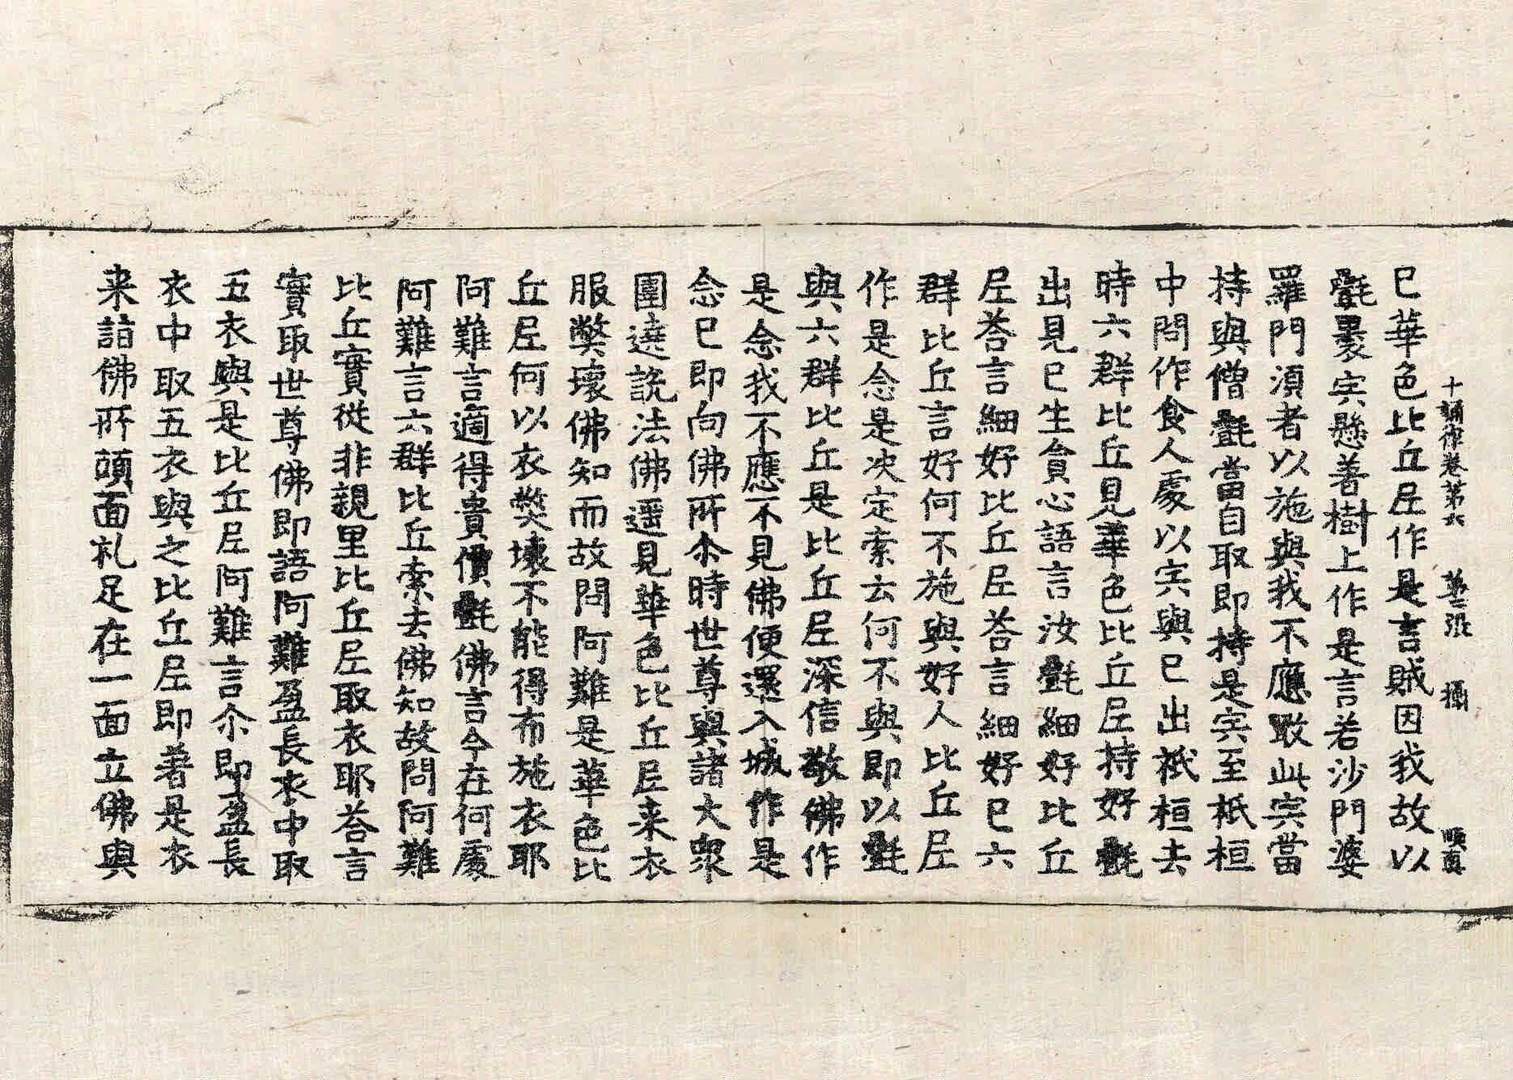 十誦律卷第六 第二張 攝 順真
已華色比丘尼作是言賊因我故以
㲲裹宍懸著樹上作是言若沙門婆
羅門湏者以施與我不應噉此宍當
持與僧㲲當自取即持是宍至祇桓
中問作食人處以宍與已出祇桓去
時六群比丘見華色比丘尼持好㲲
出見已生貪心語言汝㲲細好比丘
尼荅言細好比丘尼荅言細好已六
群比丘言好何不施與好人比丘尼
作是念是决定索去何不與即以㲲
與六群比丘是比丘尼深信敬佛作
是念我不應不見佛便還入城作是
念已即向佛所尒時世尊與諸大衆
圍遶説法佛遥見華色比丘尼来衣
服弊壞佛知而故問阿難是華色比
丘尼何以衣弊壞不能得布施衣耶
阿難言適得貴價㲲佛言今在何處
阿難言六群比丘索去佛知故問阿難
比丘實從非親里比丘尼取衣耶荅言
實取世尊佛即語阿難盈長衣中取
五衣與是比丘尼阿難言尒即盈長
衣中取五衣與之比丘尼即著是衣
来詣佛所頭面礼足在一面立佛與